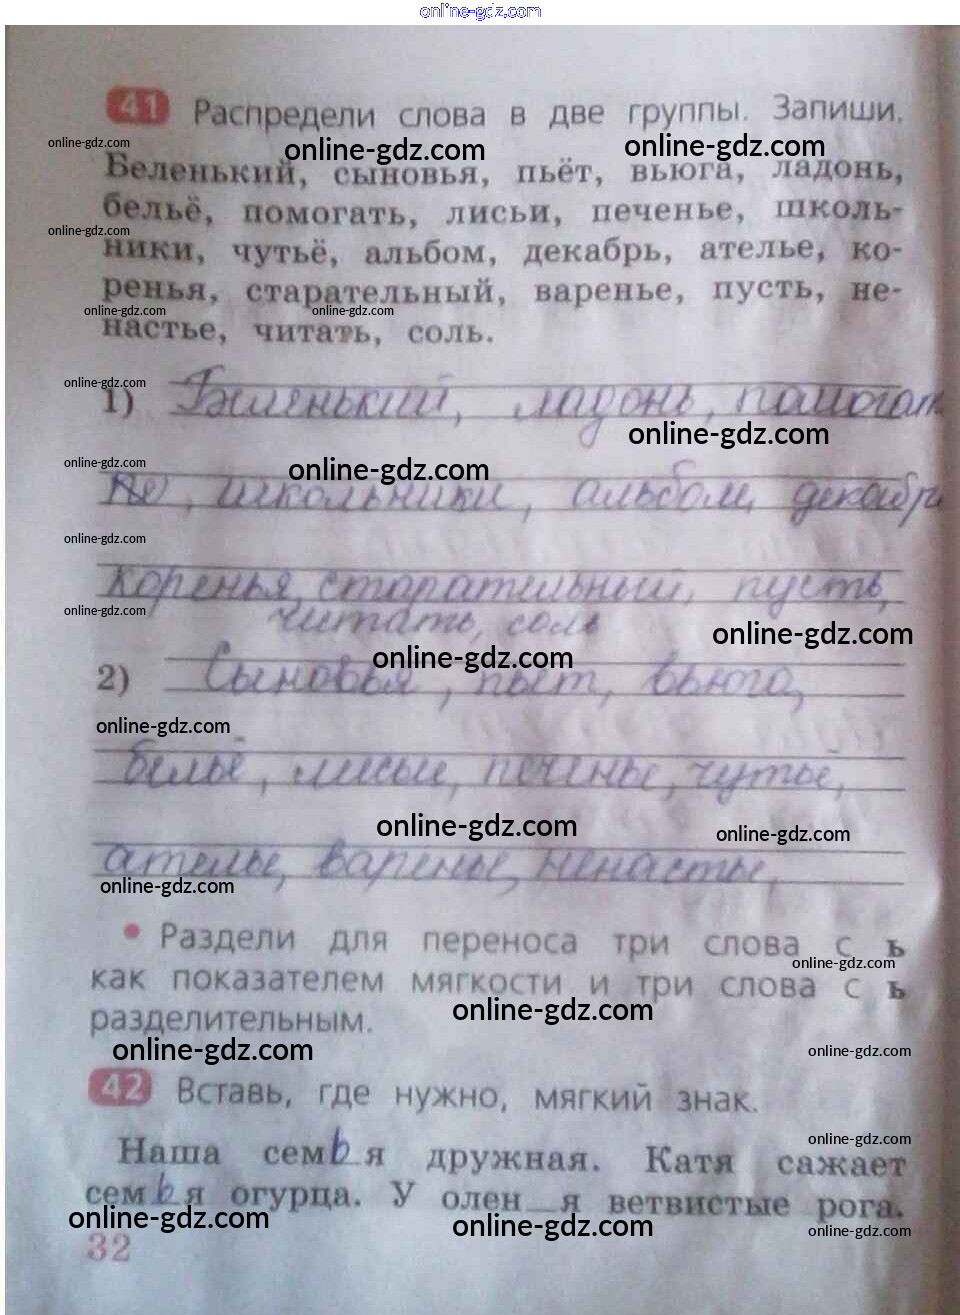 online-gdz.com
41 Распредели слова в две группы. Запиши.
online-gdz.com online-gdz.com online-gdz.com
Беленький, сыновья, пьёт, вьюга, ладонь,
бельё, помогать, лисьи, печенье, школь-
online-gdz.com
ники, чутьё, альбом, декабрь, ателье, ко-
ренья, старательный, варенье, пусть, не-
online-gdz.com online-gdz.com
настье, читать, соль.
online-gdz.com
1) Беленький, ладонь, помогать
online-gdz.com
online-gdz.com online-gdz.com
школьники, альбом, декабрь
online-gdz.com
коренья, старательный, пусть,
online-gdz.com
читать, соль
online-gdz.com
online-gdz.com
2) Сыновья, пьёт, вьюга,
online-gdz.com
бельё, лисьи, печенье, чутьё,
online-gdz.com online-gdz.com
ателье, варенье, ненастье,
online-gdz.com
• Раздели для переноса три слова с ь
online-gdz.com
как показателем мягкости и три слова с ь
online-gdz.com
разделительным.
online-gdz.com online-gdz.com
42 Вставь, где нужно, мягкий знак.
online-gdz.com
Наша семья дружная. Катя сажает
семья огурца. У олен_я ветвистые рога.
online-gdz.com online-gdz.com online-gdz.com
32